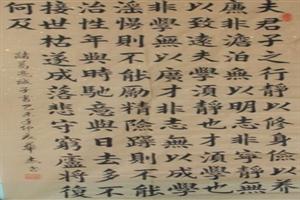 夫君子之行靜以修身儉以養
廉非澹泊無以明志非寧靜無
以致遠夫學須靜也才須學也
非學無以廣才非志無以成學也
淫慢則不能勵精險躁則不能
治性年與時馳意與日去多不
接世枯遂成落悲守窮廬將復
何及
諸葛亮誡子書